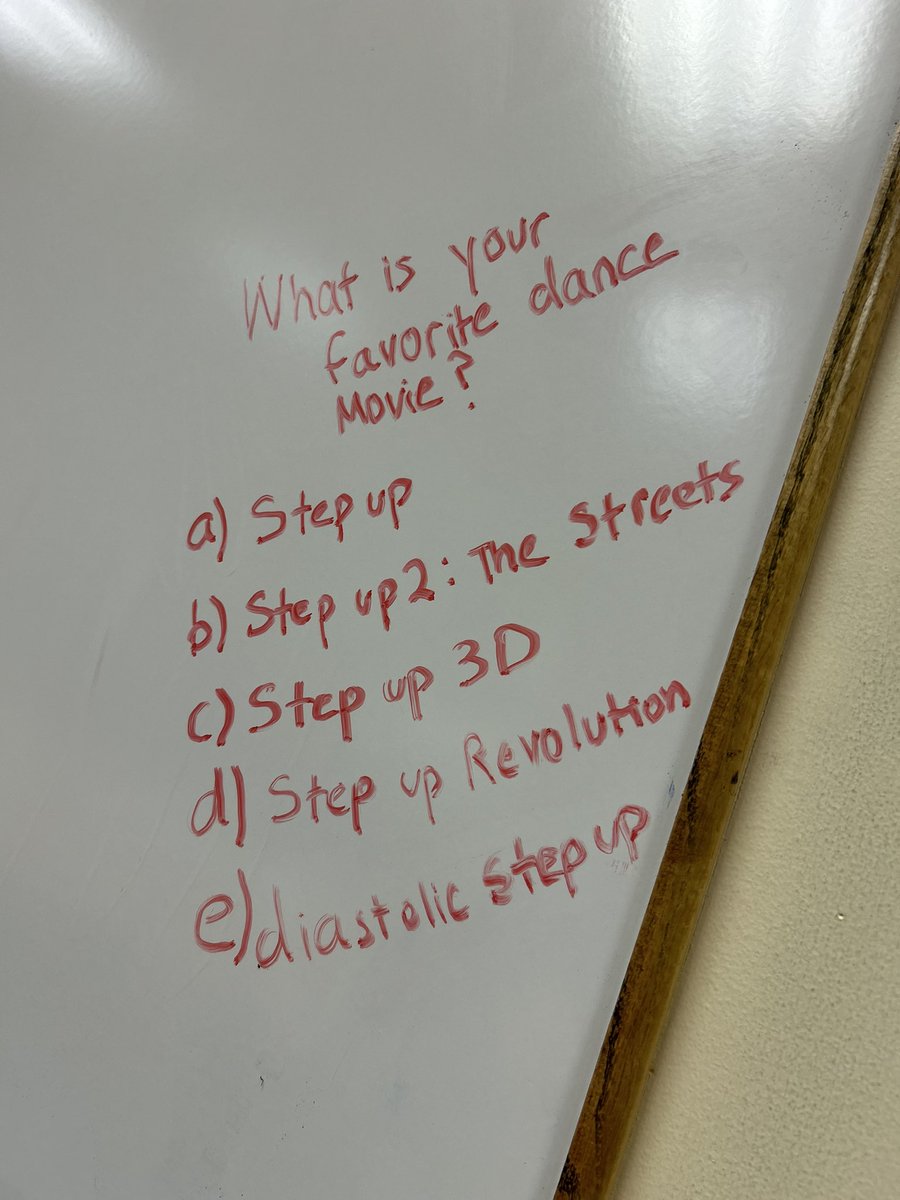 What is your
favorite dance
Movie?
a) Step up
b) Step up 2: The Streets
c) Step up 3D
d) Step up Revolution
e) diastolic Step up